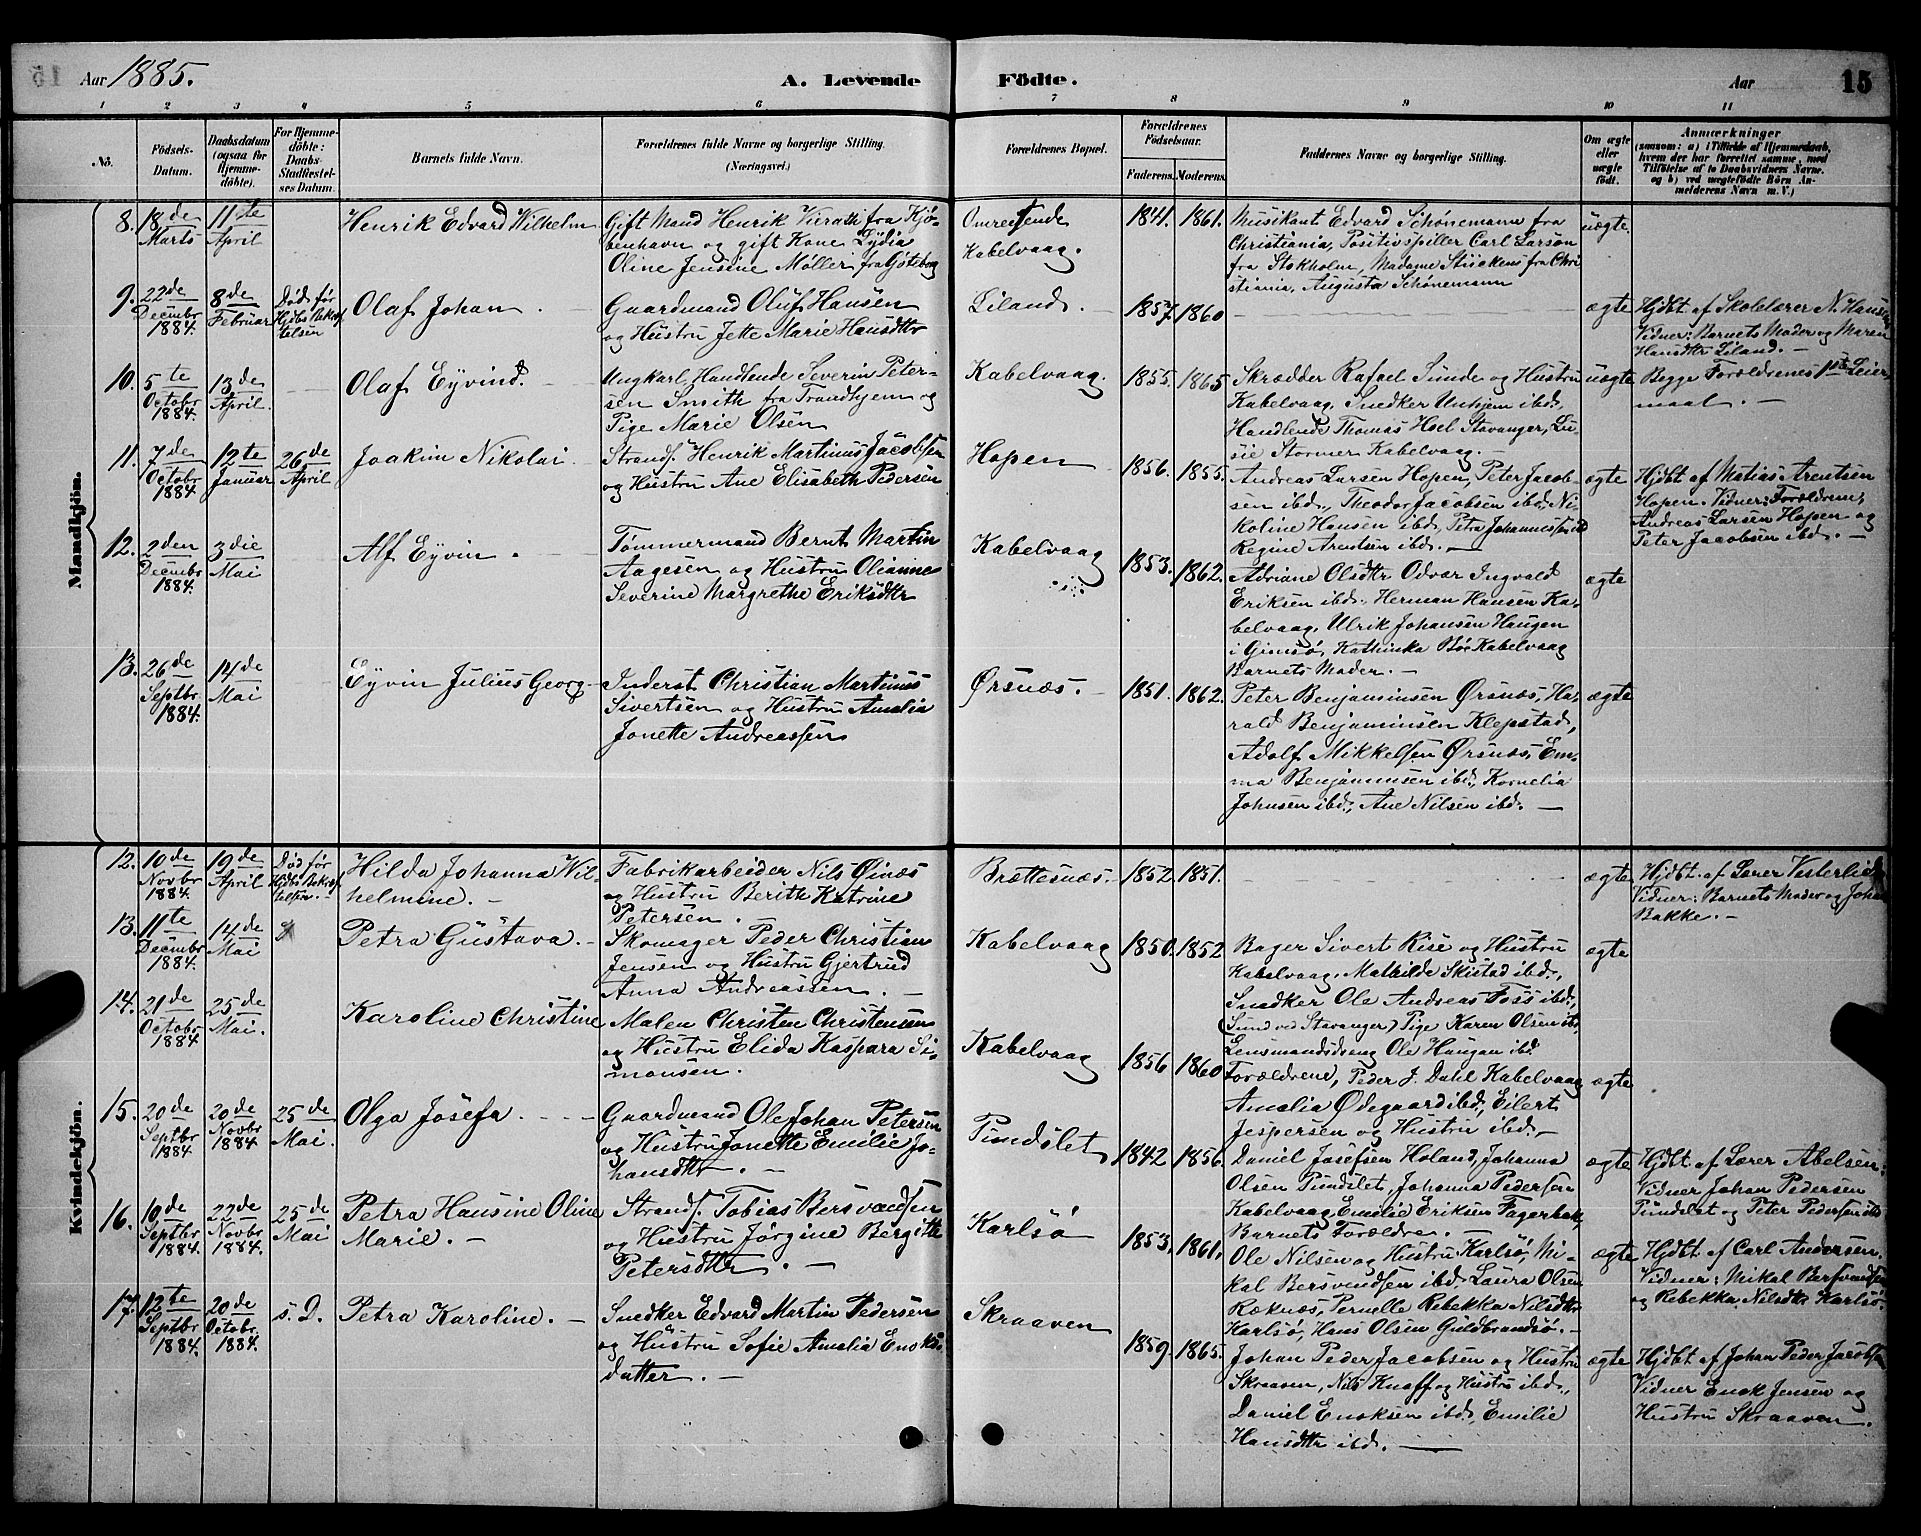 Aar 1885.
A. Levende
Födte.
Aar
15
1 2 3 4 5 6 7 8 9 10 11
No.
Födsels-
Datum.
Daabsdatum
(ogsaa for
Hjemme-
döbte).
For Hjemme-
döbte:
Daabs-
Stadfæstel-
ses Datum.
Barnets fulde Navn.
Forældrenes fulde Navne og borgerlige Stilling.
(Næringsvei.)
Forældrenes Bopæl.
Forældrenes
Födselsaar.
Faderens.
Moderens.
Faddernes Navne og borgerlige Stilling.
Om ægte
eller
uægte
født.
Anmærkninger
(saasom: a) i Tilfælde af Hjemmedaab,
hvem der har forrettet samme, med
Tilföielse af to Daabsvidners Navne,
og b) ved uægtefödte Börn An-
melderens Navn m. V.)
Mandkjön.
8.
18de
Marts
11te
April
Henrik Edvard Wilhelm
Gift Mand Henrik fra Kjø-
benhavn og gift Kone Lydia
Oline Jensine Møller fra Gøteborg
Omreisende
Kabelvaag.
1841.
1861.
Musikant Edvard Schønemann fra
Christiania, Positivspiller Carl Larson
fra Stokholm, Madame Stückens fra Chri
stiania, Augusta Schønemann
uægte.
9.
22de
Decembr
1884
8de
Februar
Død før
Hjdbs Bekræf
telsen
Olaf Johan
Gaardmand Oluf Hansen
og Hustru Jette Marie Hansdttr
Liland.
1857.
1860
ægte
Hjdbt af Skolelærer N. Hansen
Vidner: Barnets Moder og Maren
Hansdttr Liland. —
10.
5te
Octobr
1884
13de
April.
Olaf Eyvind.
Ungkarl, Handlende Severin Peter-
sen Smith fra Trondhjem og
Pige Marie Olsen
Kabelvaag.
1855.
1865
Skrædder Rafael Sunde og Hustru
Kabelvaag, Snedker Unhjem ibd.,
Handlende Thomas Hoel Stavanger, Lu-
sie Stormer Kabelvaag. —
uægte
Begge Forældrenes 1ste Leier-
maal. —
11.
7de
Octobr
1884
12te
Januar
26de
April
Joakim Nikolai
Strands. Henrik Martinus Jacobsen
og Hustru Ane Elisabeth Pedersen
Hopen
1856.
1855.
Andreas Larsen Hopen, Peter Jacob-
sen ibd., Theodor Jacobsen ibd., Ni-
koline Hansen ibd, Petra Johannessen ibd
Regine Arentsen ibd. —
ægte
Hjdbt af Matias Arentsen
Hopen. Vidner: Forældrene,
Andreas Larsen Hopen og
Peter Jacobsen ibd. —
12.
2den
Decembr
1884.
3die
Mai
Alf Eyvin
Tømmermand Bernt Martin
Aagesen og Hustru Olianna
Severine Margrethe Eriksdttr
Kabelvaag
1853.
1862.
Adriane Olsdttr Odvar Ingvald
Eriksen ibd., Herman Hansen Ka-
belvaag, Ulrik Johansen Haugen
i Gimsø, Kathinka Bør Kabelvaag
Barnets Moder. —
ægte
13.
26de
Septbr
1884.
14de
Mai
Eyvin Julius Georg
Inderst Christian Martinus
Sivertsen og Hustru Amalia
Jonette Andreassen
Ørsnæs.
1851.
1862.
Peter Benjaminsen Ørsnæs, Ha-
rald Benjaminsen Klepstad,
Adolf Mikkelsen Ørsnæs, Em-
ma Benjaminsen ibd., Kornelia
Johnsen ibd., Ane Nilsen ibd. —
ægte
Kvindekjön.
12.
10de
Novbr
1884.
19de
April
Død før
Hjdbs Bekræf
telsen. -
Hilda Johanna Wil-
helmine. —
Fabrikarbeider Nils Øinæs
og Hustru Berith Katrine
Petersen. —
Brættesnæs.
1852
1851.
ægte
Hjdbt. af Lærer Vesterlid
Vidner: Barnets Moder og Johan
Bakke. —
13.
11te
Decembr
1884
14de
Mai
Petra Gustava.
Skomager Peder Christian
Jensen og Hustru Gjertrud
Anna Andreassen. —
Kabelvaag
1850.
1852
Bager Sivert Rise og Hustru
Kabelvaag, Mathilde Skistad ibd.,
Snedker Ole Andreas Foss ibd.,
(Sund ved Stavanger) Pige Karen Olsen ibd.
Lensmandsdreng Ole Haugan ibd.
ægte
14.
21de
Octobr
1884
25de
Mai.
Karoline Christine
Maler Christen Christensen
og Hustru Elida Kaspara Si-
monsen.
Kabelvaag
1856
1860
Forældrene, Peder J. Dahl Kabelvaag
Amalia Ødegaard ibd., Eilert
Jespersen og Hustru ibd. —
ægte
15.
20de
Septbr
1884
20de
Novbr
1884
25de
Mai.
Olga Josefa.
Gaardmand Ole Johan Petersen
og Hustru Jonette Emilie Jo-
hansdttr. —
Pundslet
1842
1856.
Daniel Josefsen Holand, Johanna
Olsen Pundslet, Johanna Pedersen
Kabelvaag Emilie Eriksen Fagerbak
Barnets Forældre. —
ægte
Hjdbt. af Lærer Abelsen.
Vidner Johan Pedersen
Pundslet og Peter Pedersen ibd
16.
19de
Septbr
1884.
22de
Novbr
1884.
25de
Mai
Petra Hansine Oline
Marie. —
Strands. Tobias Bersvendsen
og Hustru Jørgine Bergitte
Petersdttr. —
Karlsø
1853.
1861.
Ole Nilsen og Hustru Karlsø, Mi-
kal Bersvendsen ibd. Laura Olsen
Ræknæs, Pernelle Rebekka Nilsdttr
Karlsø, Hans Olsen Guldbrandsø. —
ægte
Hjdbt. af Carl Andersen.
Vidner: Mikal Bersvendsen
og Rebekka Nilsdttr Karlsø.
17.
12te
Septbr
1884.
20de
Octobr.
1884.
s. D.
Petra Karoline. —
Snedker Edvard Martin Pedersen
og Hustru Sofie Amalia Enoks-
datter. —
Skraaven
1859.
1865.
Johan Peder Jacobsen og Hustru
Skraaven, Nils Knaff og Hustru ibd.,
Daniel Enoksen ibd., Emilie
Hansdttr ibd. —
ægte
Hjdbt af Johan Peder Jacobsen
Vidner Enok Jensen og
Hustru Skraaven.